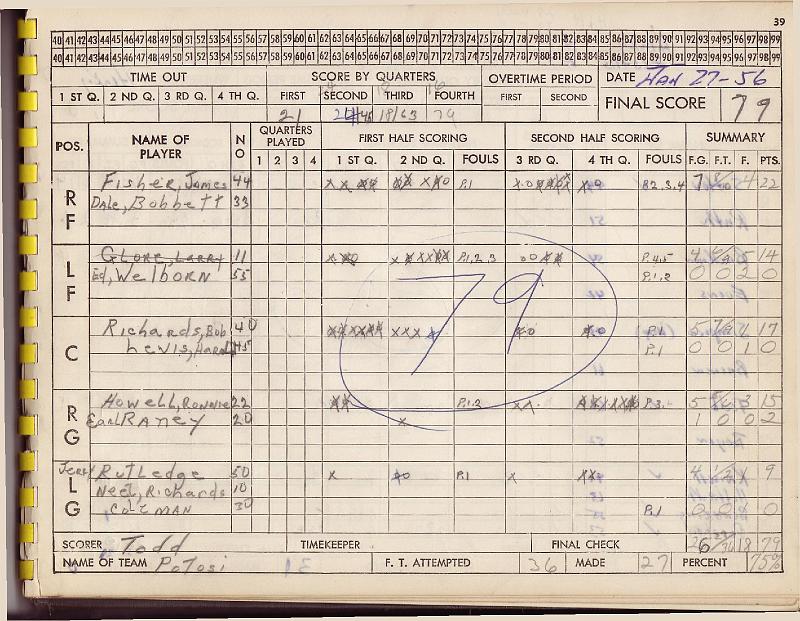 39
40 41 42 43 44 45 46 47 48 49 50 51 52 53 54 55 56 57 58 59 60 61 62 63 64 65 66 67 68 69 70 71 72 73 74 75 76 77 78 79 80 81 82 83 84 85 86 87 88 89 90 91 92 93 94 95 96 97 98 99
40 41 42 43 44 45 46 47 48 49 50 51 52 53 54 55 56 57 58 59 60 61 62 63 64 65 66 67 68 69 70 71 72 73 74 75 76 77 78 79 80 81 82 83 84 85 86 87 88 89 90 91 92 93 94 95 96 97 98 99
TIME OUT SCORE BY QUARTERS OVERTIME PERIOD DATE JAN 27-56
1 ST Q. 2 ND Q. 3 RD Q. 4 TH Q. FIRST SECOND THIRD FOURTH FIRST SECOND FINAL SCORE 79
21 18/63 79
POS. NAME OF PLAYER NO QUARTERS PLAYED FIRST HALF SCORING SECOND HALF SCORING SUMMARY
1 2 3 4 1 ST Q. 2 ND Q. FOULS 3 RD Q. 4 TH Q. FOULS F.G. F.T. F. PTS.
RF Fisher, James 44 P.1 P.2,3,4 7 4 22
Dale, Bobbett 33
LF Glore, Larry 11 P.1,2,3 P.4,5 4 5 14
Ed, Welborn 55 P.1,2 0 0 2 0
C Richards, Bob 40 P.1 5 17
Lewis, Harold 45 P.1 0 0 1 0
RG Howell, Ronnie 22 P.1.2 P.3 5 3 15
Earl Raney 20 1 0 0 2
LG Jerry Rutledge 50 P.1 4 9
Neel, Richards 10
Coleman 30 P.1 0 0
79
SCORER Todd TIMEKEEPER FINAL CHECK 26 18 79
NAME OF TEAM Potosi F. T. ATTEMPTED 36 MADE 27 PERCENT 75%